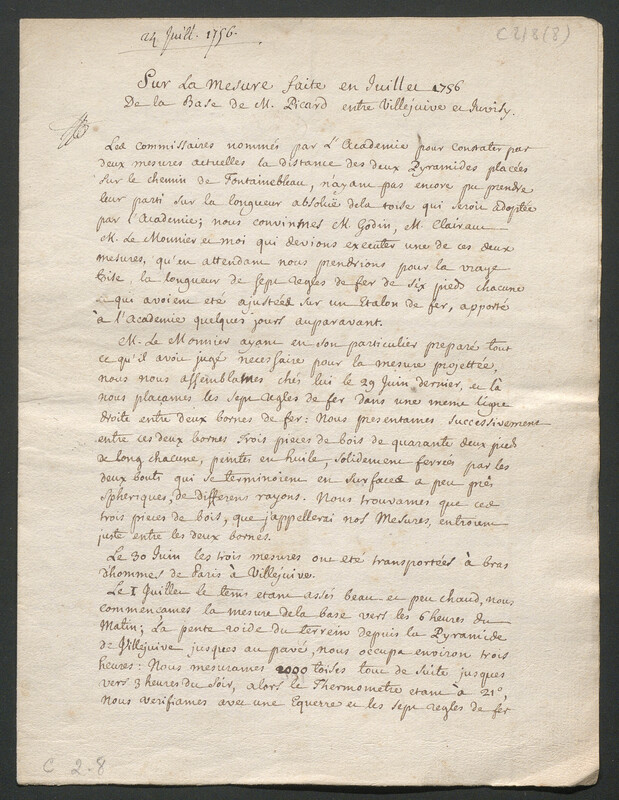 24 Juill. 1756.
C 2/8(8)
Sur La Mesure faite en Juillet 1756
De la Base de M. Picard entre Villejuive et Juvisy.
Les commissaires nommés par L'Academie pour constater par
deux mesures actuelles la distance des deux Pyramides placées
sur le chemin de Fontainebleau, n'ayant pas encore pu prendre
leur parti sur la longueur absolüe dela toise qui seroit adoptée
par l'Academie; nous convinmes M. Godin, M. Clairaut
M. Le Monnier et moi qui devions executer une de ces deux
mesures, qu'en attendant nous prendrions pour la vraye
toise, la longueur de sept regles de fer de six pieds chacune
qui avoient eté ajustées sur un Etalon de fer, apporté
à l'Academie quelques jours auparavant.
M. Le Monnier ayant en son particulier preparé tout
ce qu'il avoit jugé necessaire pour la mesure projettée,
nous nous assemblames chés lui le 29 Juin dernier, et là
nous plaçames les sept regles de fer dans une meme ligne
droite entre deux bornes de fer: Nous presentames successivement
entre ces deux bornes trois pieces de bois de quarante deux pieds
de long chacune, peintes en huile, solidement ferrées par les
deux bouts qui se terminoient en surfaces a peu près
spheriques, de differens rayons. Nous trouvames que ces
trois pieces de bois, que j'appellerai nos Mesures, entroient
juste entre les deux bornes.
Le 30 Juin les trois mesures ont eté transportées à bras
d'hommes de Paris à Villejuive.
Le 1 Juillet le tems etant assés beau et peu chaud, nous
commençames la mesure dela base vers les 6 heures du
Matin; La pente roide du terrein depuis la Pyramide
de Villejuive jusques au pavé, nous occupa environ trois
heures: Nous mesurames 2000 toises tout de suite jusques
vers 3 heures du soir, alors le Thermometre etant à 21°,
Nous verifiames avec une Equerre et les sept regles de fer
C 2-8